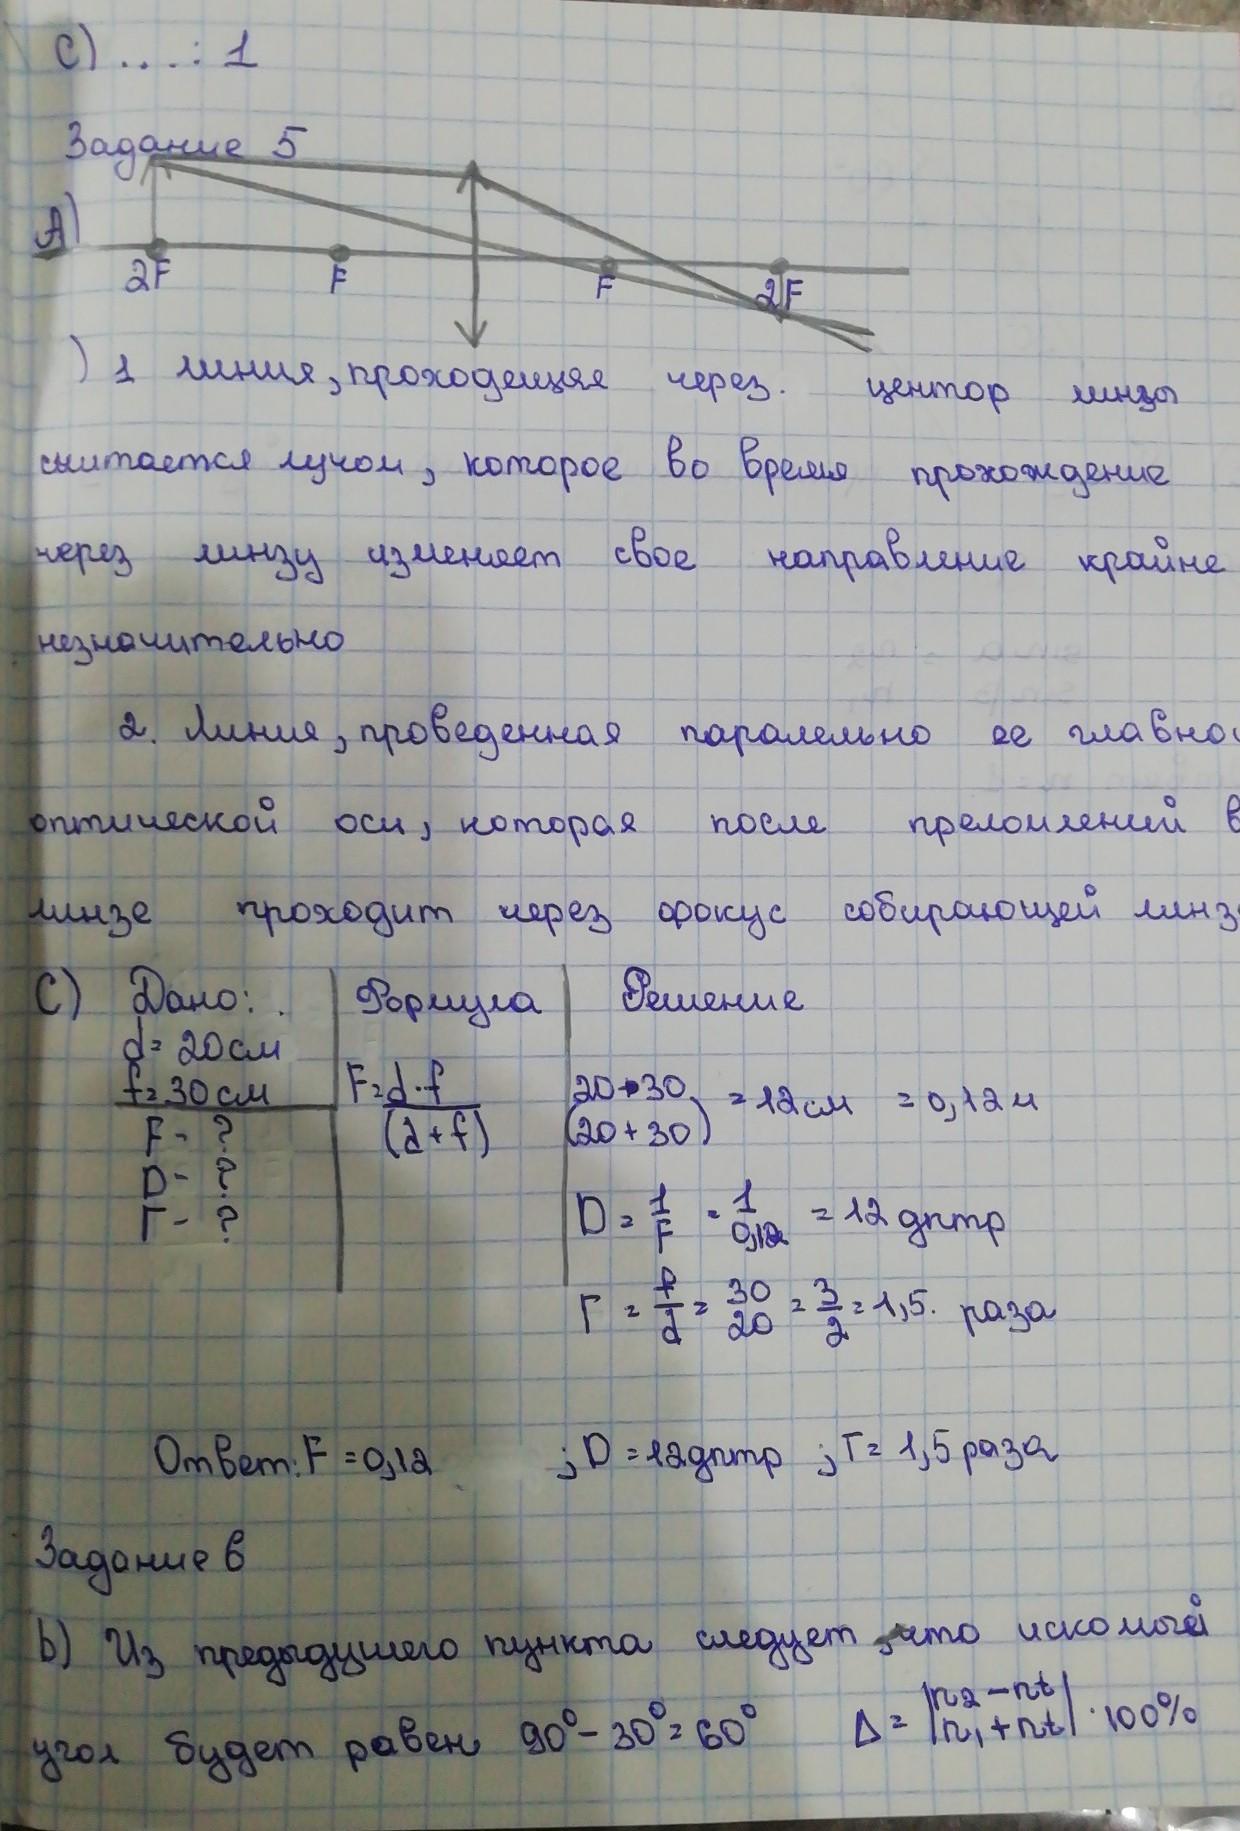 С) ....: 1
Задание 5
А)
2F F F 2F
) 1 линия, проходещяя через. центор линзы
считается лучом, которое во время прохождение
через линзу изменяет свое направление крайне
незначительно
2. Линия, проведенная паралельно ее главной
оптической оси, которая после преломлений в
линзе проходит через фокус собирающей линзы
С) Дано: Формула Решение
d = 20см
f = 30см F = d·f 20·30 = 12см = 0,12м
F - ? (d + f) (20 + 30)
D - ?
Г - ? D = 1/F = 1/0,12 = 12 дптр
Г = f/d = 30/20 = 3/2 = 1,5. раза
Ответ: F = 0,12 ; D = 12дптр ; Г = 1,5 раза
Задание 6
b) Из предыдушего пункта следует, что искомый
угол будет равен 90° - 30° = 60° Δ = |n2 - nt / n1 + nt| · 100%